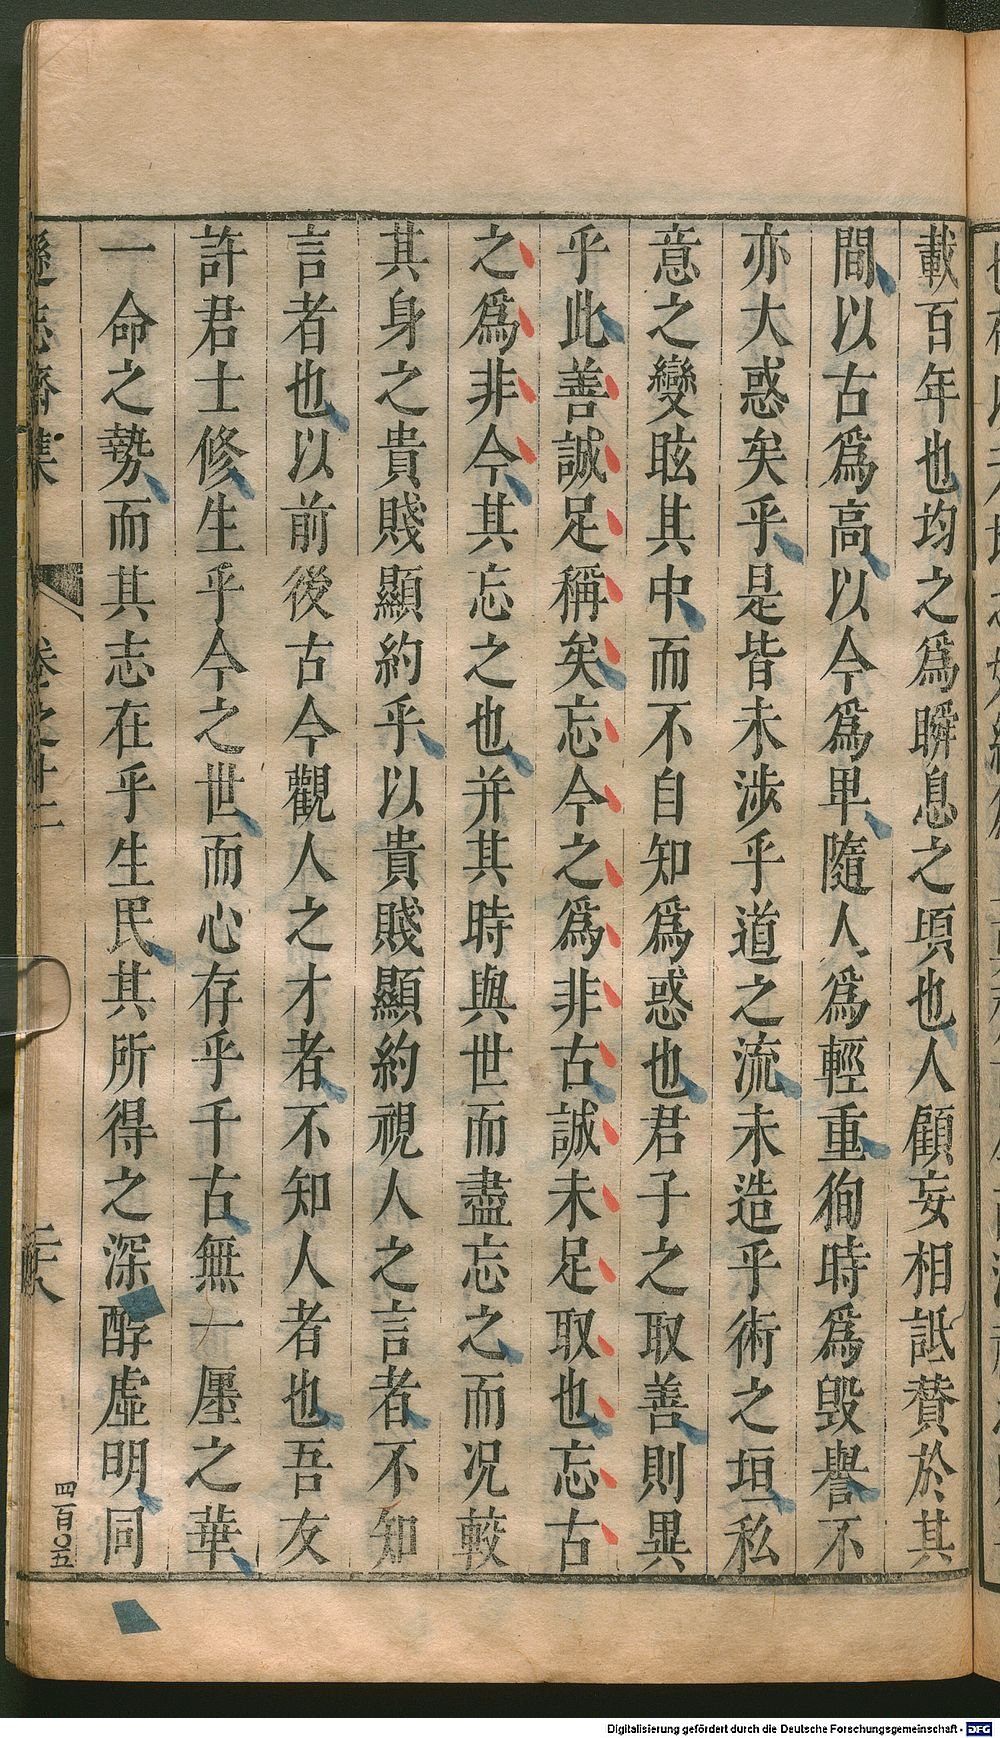 載百年也均之爲瞬息之頃也人顧妄相詆賛於其
間以古爲高以今爲卑隨人爲輕重徇時爲毀譽不
亦大惑矣乎是皆未涉乎道之流未造乎術之垣私
意之變眩其中而不自知爲惑也君子之取善則異
乎此善誠足稱矣忘今之爲非古誠未足取也忘古
之爲非今其忘之也并其時與世而盡忘之而况較
其身之貴賤顯約乎以貴賤顯約視人之言者不知
言者也以前後古今觀人之才者不知人者也吾友
許君士修生乎今之世而心存乎千古無一廛之華
一命之勢而其志在乎生民其所得之深醇虛明同
遜志齋集 卷之十二 二十八
四百〇五
Digitalisierung gefördert durch die Deutsche Forschungsgemeinschaft - DFG